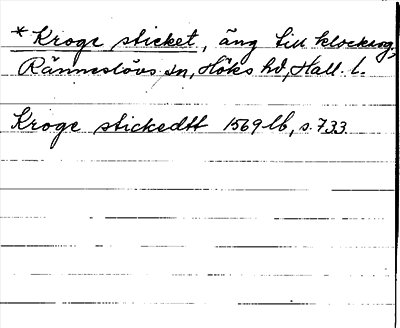 * Kroge sticket, äng till klockareg,
Ränneslövs sn, Höks hd, Hall. l.
Kroge stickedtt 1569 lb, s. 733.